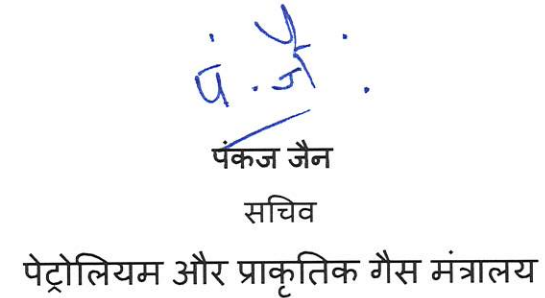 पं. जै.
पंकज जैन
सचिव
पेट्रोलियम और प्राकृतिक गैस मंत्रालय